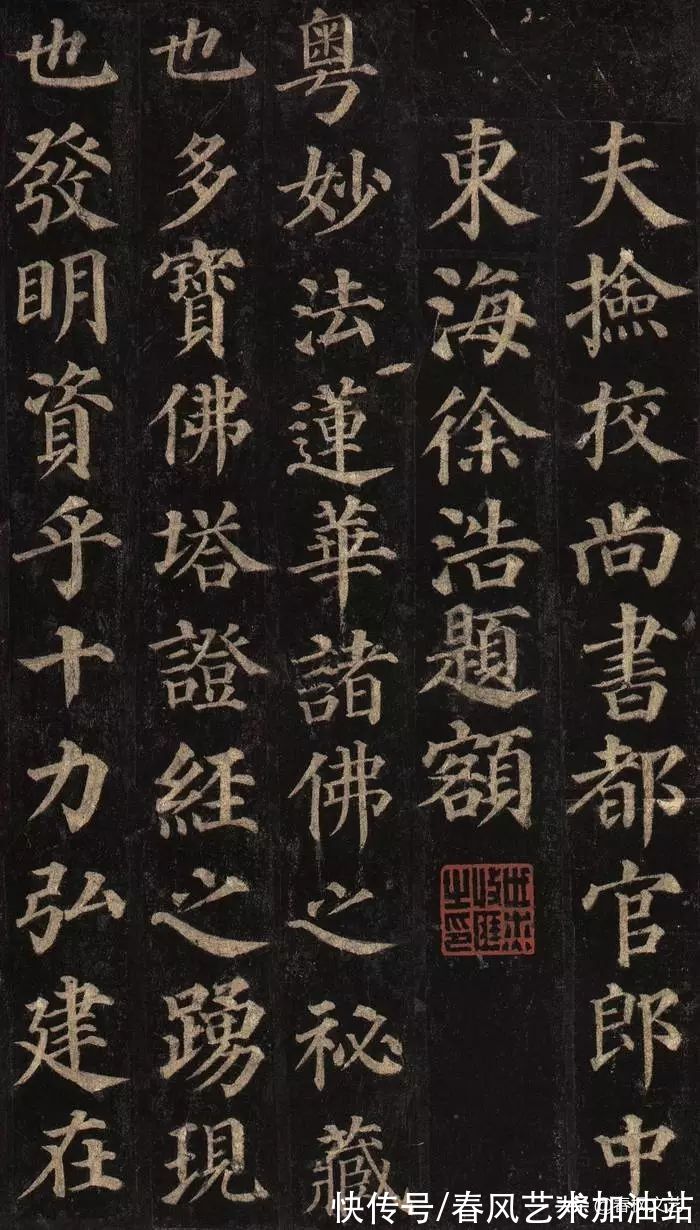 夫撿挍尚書都官郎中
東海徐浩題額
粤妙法蓮華諸佛之祕藏
也多寶佛塔證經之踴現
也發明資乎十力弘建在
快传号/春风艺术加油站